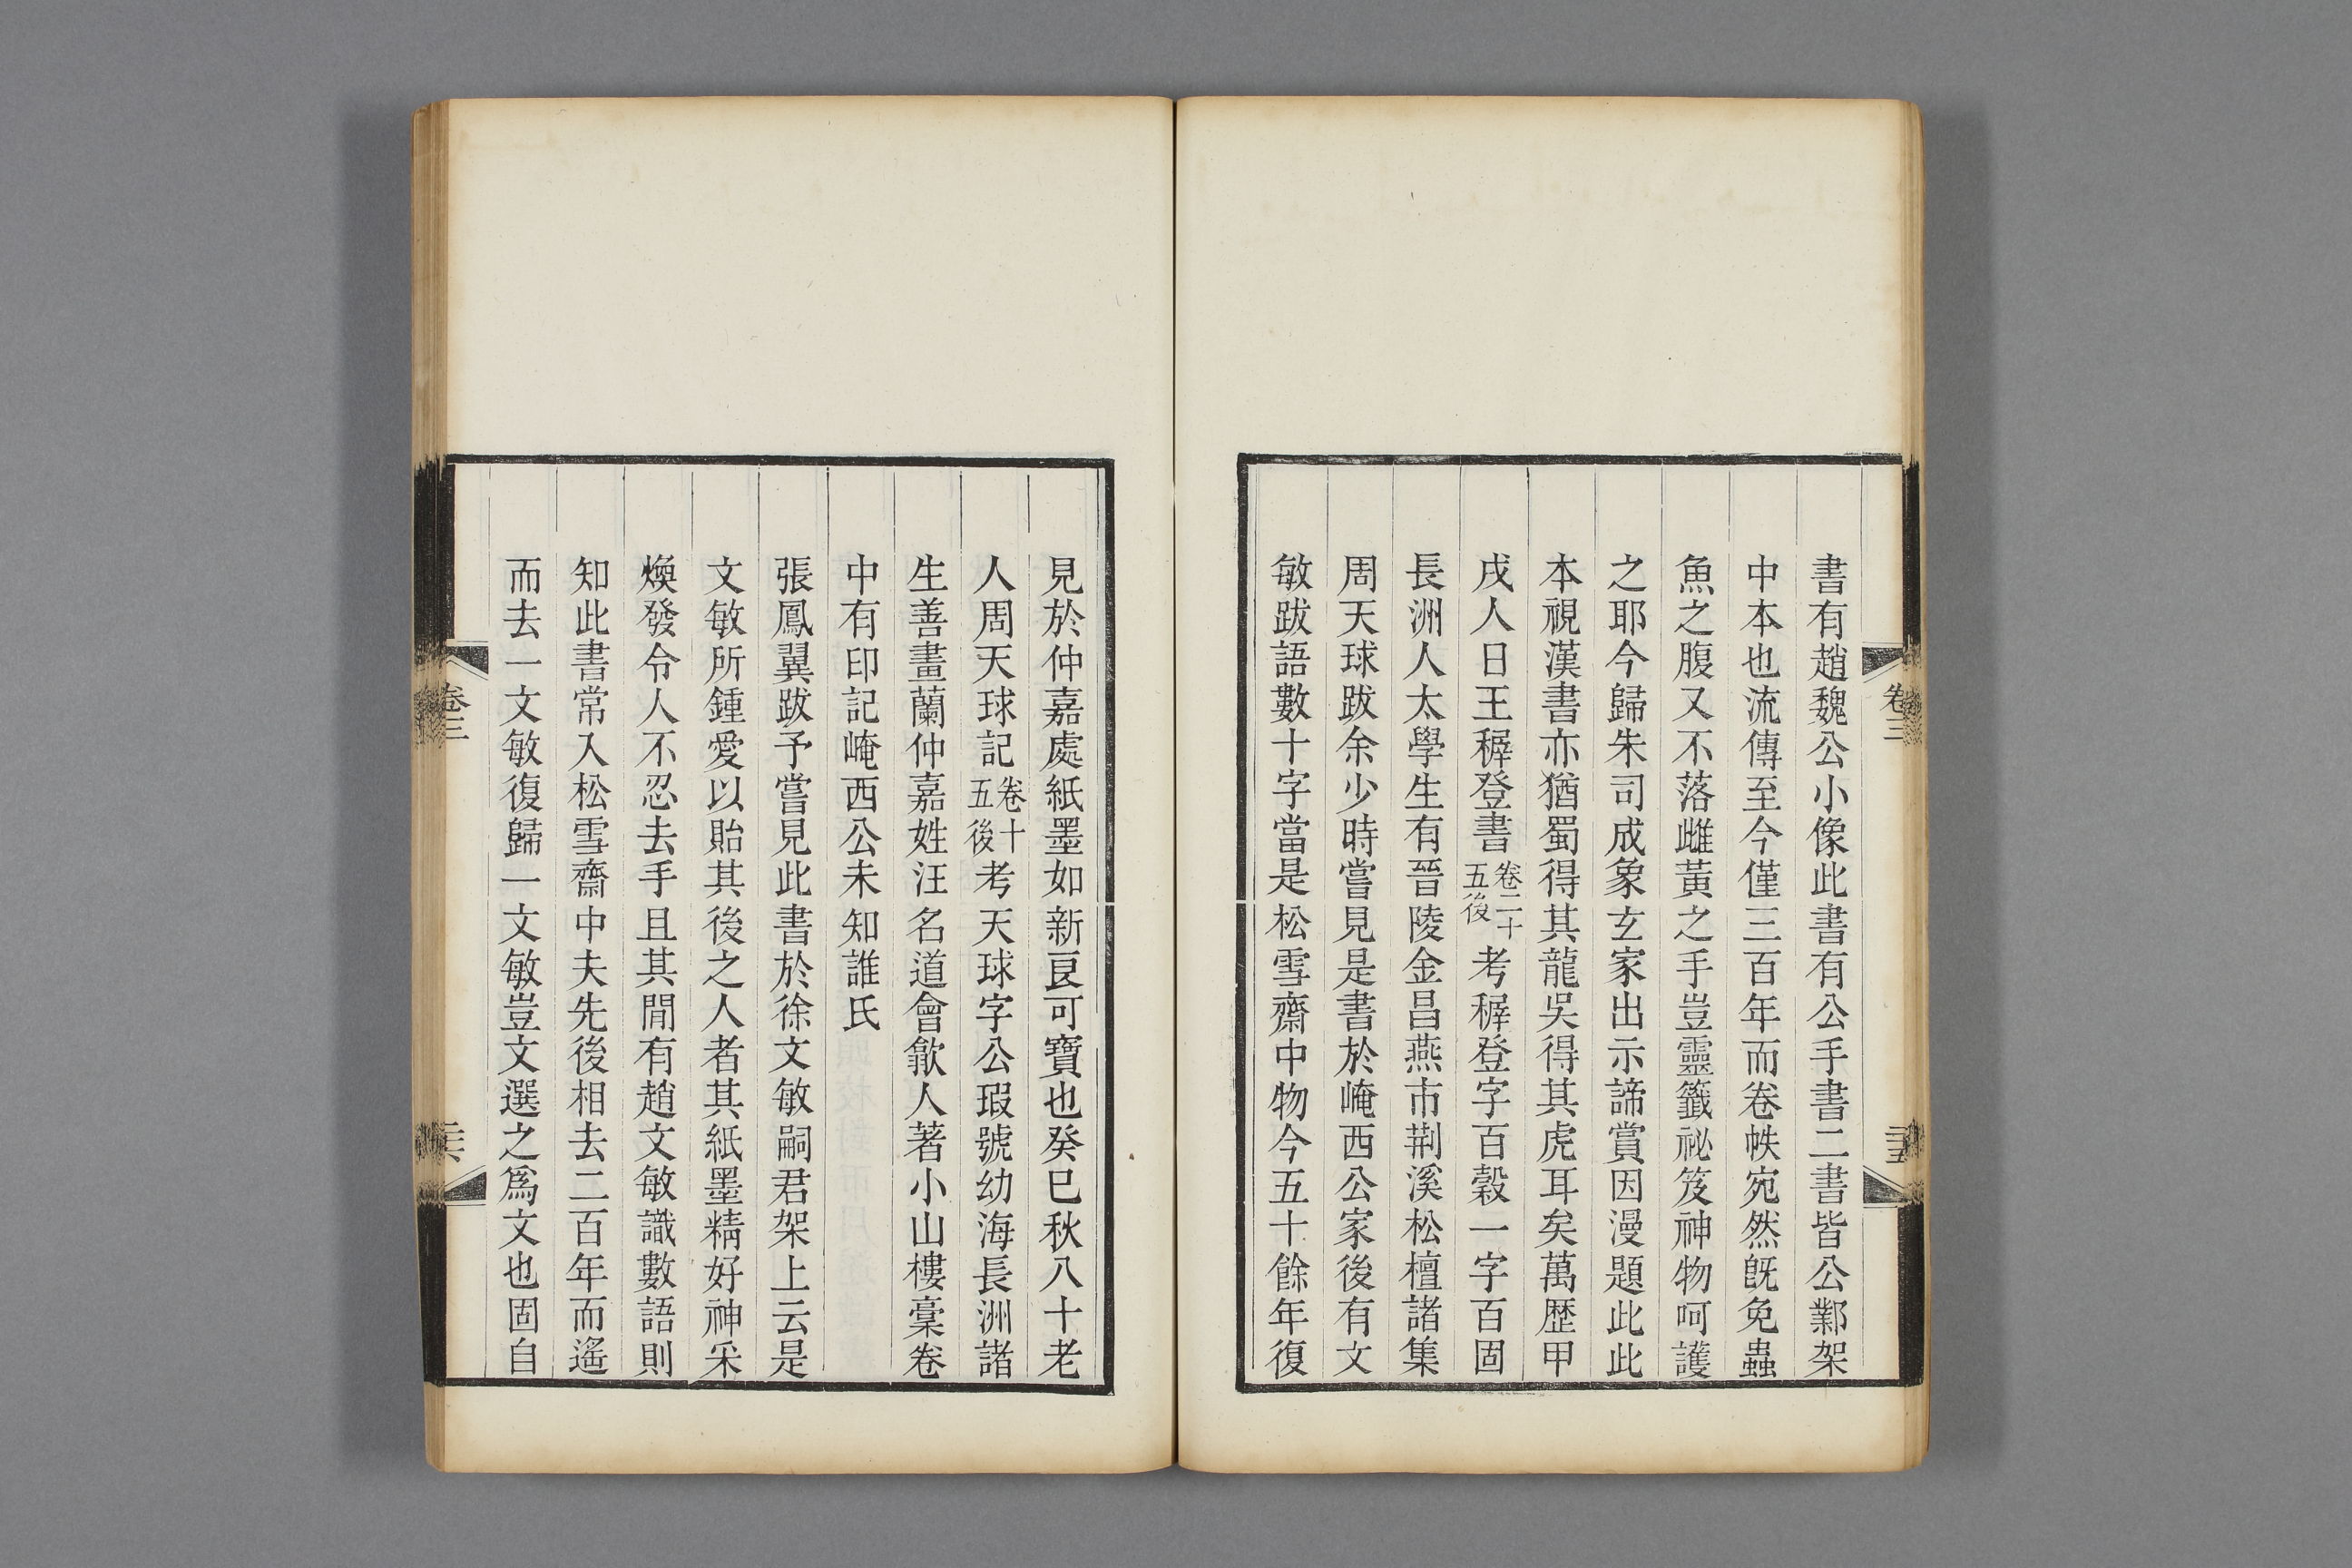 書有趙魏公小像此書有公手書二書皆公鄴架
中本也流傳至今僅三百年而卷帙宛然旣免蟲
魚之腹又不落雌黃之手豈靈籤祕笈神物呵護
之耶今歸朱司成象玄家出示諦賞因漫題此此
本視漢書亦猶蜀得其龍吳得其虎耳矣萬歷甲
戌人日王穉登書卷二十五後考穉登字百穀一字百固
長洲人太學生有晉陵金昌燕市荆溪松檀諸集
周天球跋余少時嘗見是書於崦西公家後有文
敏跋語數十字當是松雪齋中物今五十餘年復
卷三
二十五
見於仲嘉處紙墨如新良可寶也癸巳秋八十老
人周天球記卷十五後考天球字公瑕號幼海長洲諸
生善畫蘭仲嘉姓汪名道會歙人著小山樓稾卷
中有印記崦西公未知誰氏
張鳳翼跋予嘗見此書於徐文敏嗣君架上云是
文敏所鍾愛以貽其後之人者其紙墨精好神采
煥發令人不忍去手且其閒有趙文敏識數語則
知此書常入松雪齋中夫先後相去二百年而遙
而去一文敏復歸一文敏豈文選之爲文也固自
卷三
二十六